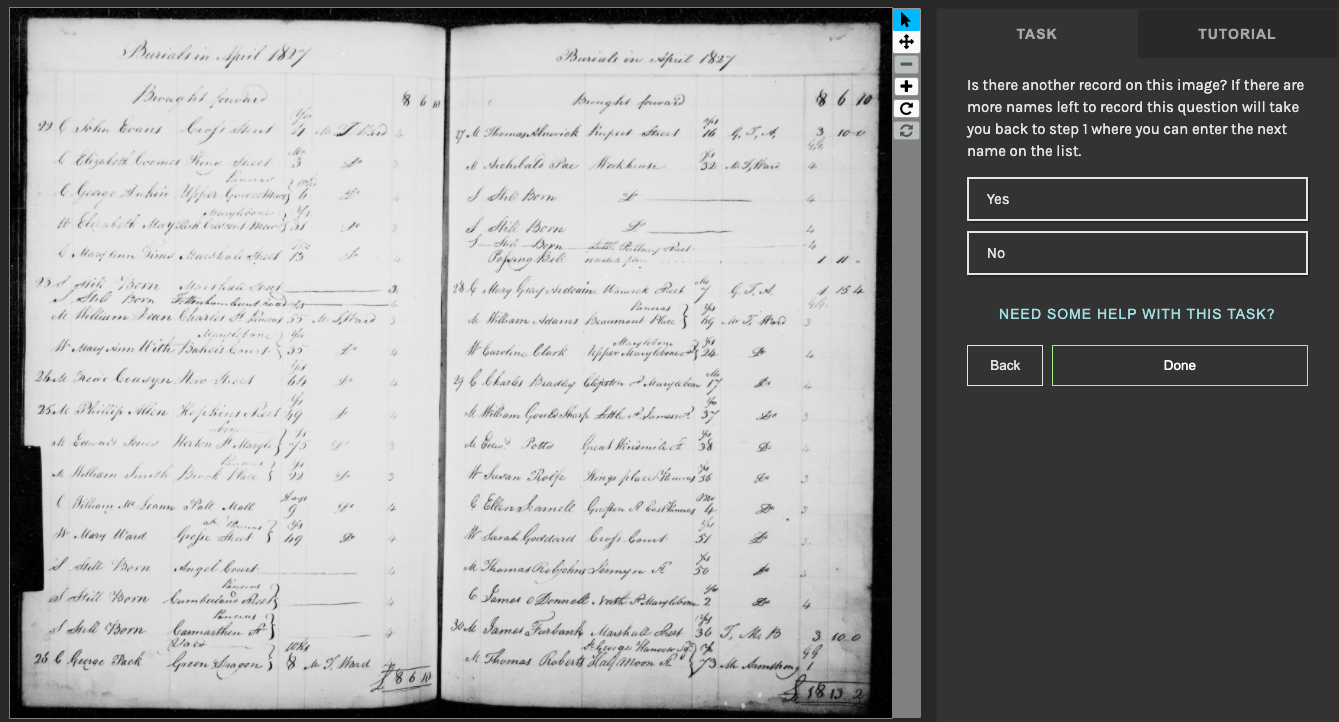 Burials in April 1827
Brought forward 8 6 10
22 C John Evans Cross Street Yrs 4 Mr T. Ward 4
C Elizabeth Coomes King Street Mo 3 Do 3
C George Aicken Upper Gower Mews Pancras 6 Do 3
W Elizabeth May Park Crescent Mews Marylebone Yrs 31 Do 3
C Mary Ann Sims Marshall Street 13 Do 4
23 S Still Born Marshall Street 3
S Still Born Tottenham Court Road 4
M William Dean Charles St Pancras Yrs 55 Mr T. Ward 3
W Mary Ann With Bakers Court Marylebone Yrs 35 Do 4
24 M Cousyn New Street Yrs 64 Do 4
25 M Phillip Allen Hopkins Street Yrs 49 Do 4
M Edward Jones Norton St Maryle bone Yrs 75 Do 3
M William Smith Brook Place Pancras Yrs 32 Do 3
C William Mc Pall Mall Days 9 Do 4
W Mary Ward Grosse Street Pancras Yrs 49 Do 4
S Still Born Angel Court 4
S Still Born Cumberland Street Pancras 4
S Still Born Carmarthen St Pancras 4
26 C George Pack Green Dragon Yard Wks 8 Mr T. Ward 4
£ 8 6 10
Burials in April 1827
Brought forward 8 6 10
27 M Thomas Rupert Street Yrs 16 G. T. A. 3 10 0
M Archibald Pae Workhouse Yrs 32 Mr T. Ward 4
S Still Born Do 4
S Still Born Do 4
S Still Born Little Pultney Street 4
Passing Bell 1 11 -
28 C Mary Gray Warwick Street Mo 7 G. T. A. 1 15 4
M William Adams Beaumont Place Pancras Yrs 69 Mr T. Ward 3
W Caroline Clark Upper Marylebone St Marylebone Yrs 24 Do 4
29 C Charles Bradley Clipston St Marylebone Mo 17 Do 4
M William Gould Sharp Little St James St Yrs 37 Do 3
M Edwd Potts Great Windmill St Yrs 38 Do 4
W Susan Rolfe Kings place Pancras Yrs 36 Do 3
C Ellen Scarnell Grafton St East Pancras Mo 4 Do 3
W Sarah Goddard Cross Court Yrs 51 Do 3
M Thomas Robjohns Jermyn St Yrs 50 Do 4
C James O Donnell North St Marylebone Yrs 2 Do 4
30 M James Furbank Marshall Street Yrs 36 T. M. B 3 10 0
M Thomas Roberts Half Moon St St George Hanover Sq Yrs 73 Mr Armstrong 1
£ 18 13 2
TASK
TUTORIAL
Is there another record on this image? If there are
more names left to record this question will take
you back to step 1 where you can enter the next
name on the list.
Yes
No
NEED SOME HELP WITH THIS TASK?
Back
Done